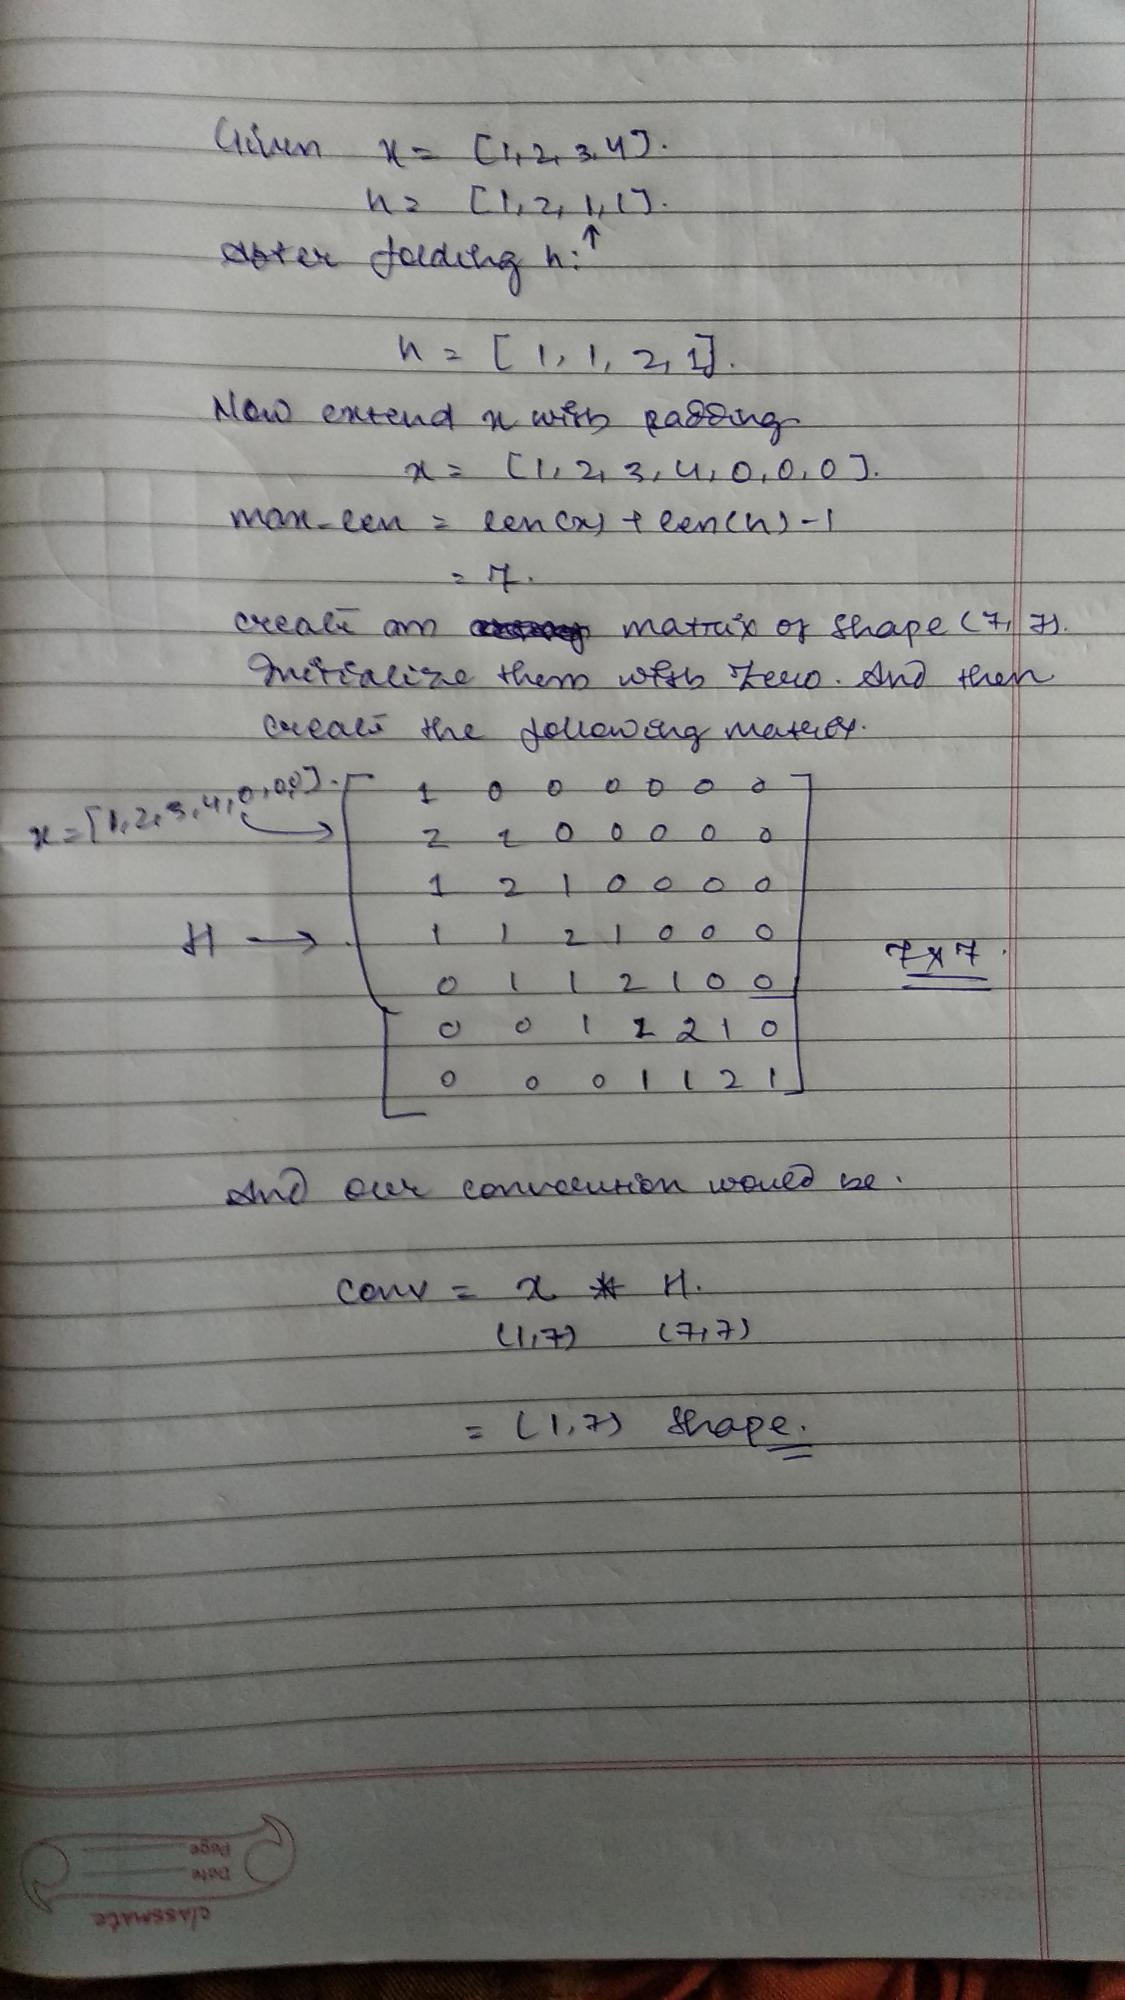 Given x = [1, 2, 3, 4].
h = [1, 2, 1, 1].
↑
After folding h:
h = [1, 1, 2, 1].
Now extend x with padding
x = [1, 2, 3, 4, 0, 0, 0].
max-len = len(x) + len(h) - 1
= 7.
create an matrix of shape (7, 7).
Initialize them with zero. And then
create the following matrix.
x = [1, 2, 3, 4, 0, 0, 0].
1 0 0 0 0 0 0
2 1 0 0 0 0 0
1 2 1 0 0 0 0
H → 1 1 2 1 0 0 0
7 x 7
0 1 1 2 1 0 0
0 0 1 1 2 1 0
0 0 0 1 1 2 1
And our convolution would be.
Conv = x * H.
(1,7) (7,7)
= (1,7) shape.
classmate
Date
Page